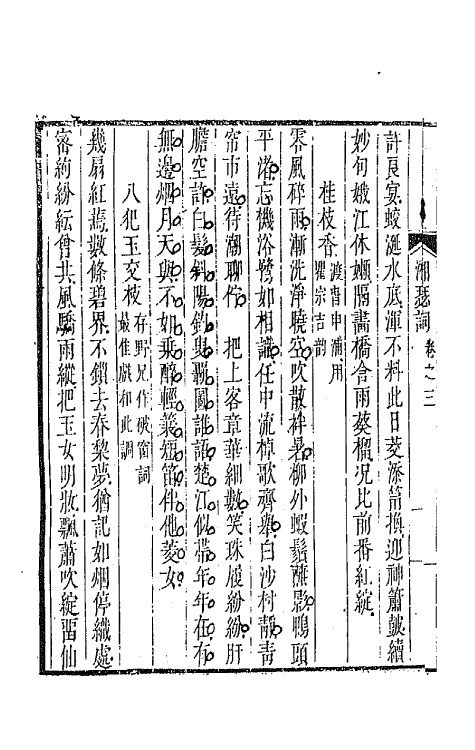 湘瑟詞 卷之三
許良宴蛟涎水底渾不料此日菱添箭換迎神簫鼓續
妙句娥江休嬾膈畵橋合雨葵榴况比前番紅綻
桂枝香 渡晉申浦用瞿宗吉韵
零風碎雨漸洗淨曉空吹散袢暑柳外蝦鬚蘸影鴨頭
平渚忘機浴鷺如相識任中流棹歌齊舉白沙村靜青
帘市遠待潮聊佇 把上客章華細數笑珠履紛紛肝
膽空許白髮斜陽釣叟覇圖誰語楚江似帶年年在有
無邊烟月天與不如乗醉輕簑短笛伴他菱女
八犯玉交枝 存野兄作破窗詞最佳戯和此調
幾扇紅蔫數條碧界不鎖去春棃夢猶記如烟停織處
窗絢紛紜曾共風驕雨縱把玉女明妝飄蕭吹綻留仙